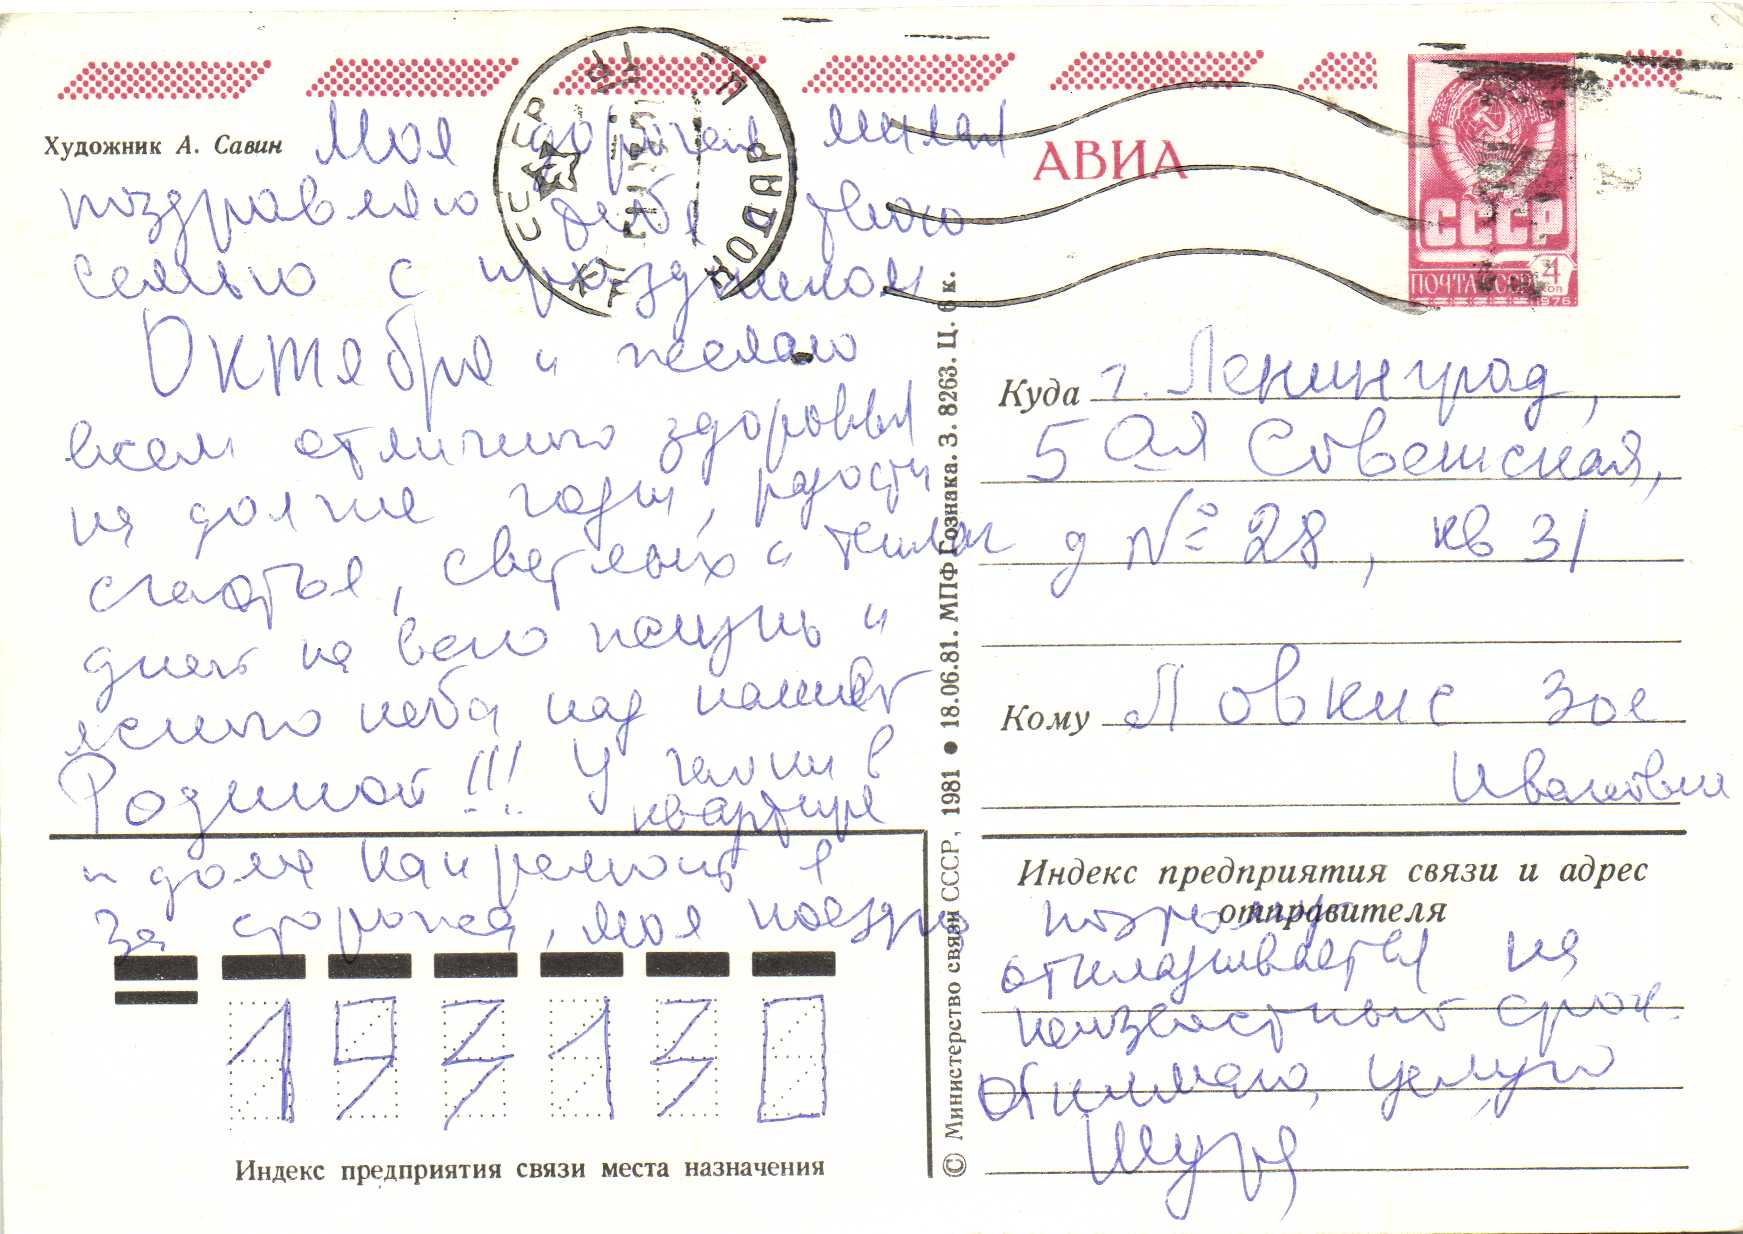 Художник А. Савин
Моя дорогая милая
поздравляю тебя твою
семью с праздником
Октября и желаю
всем отличного здоровья
на долгие годы, радости
счастья, светлых и теплых
дней на всю жизнь и
ясного неба над нашей
Родиной!!! У Галки в
квартире
и доме кап ремонт я
за сторожа, моя поездка
поэтому
откладывается на
неизвестный срок.
Обнимаю, целую
Шура
СССР
КРАСНОДАР
АВИА
СССР
ПОЧТА СССР 4 коп
1976
Куда г. Ленинград,
5 ая Советская,
д № 28, кв 31
Кому Ловкис Зое
Ивановне
Индекс предприятия связи и адрес
отправителя
193130
Индекс предприятия связи места назначения
© Министерство связи СССР, 1981 ● 18.06.81. МПФ Гознака. З. 8263. Ц. 6 к.